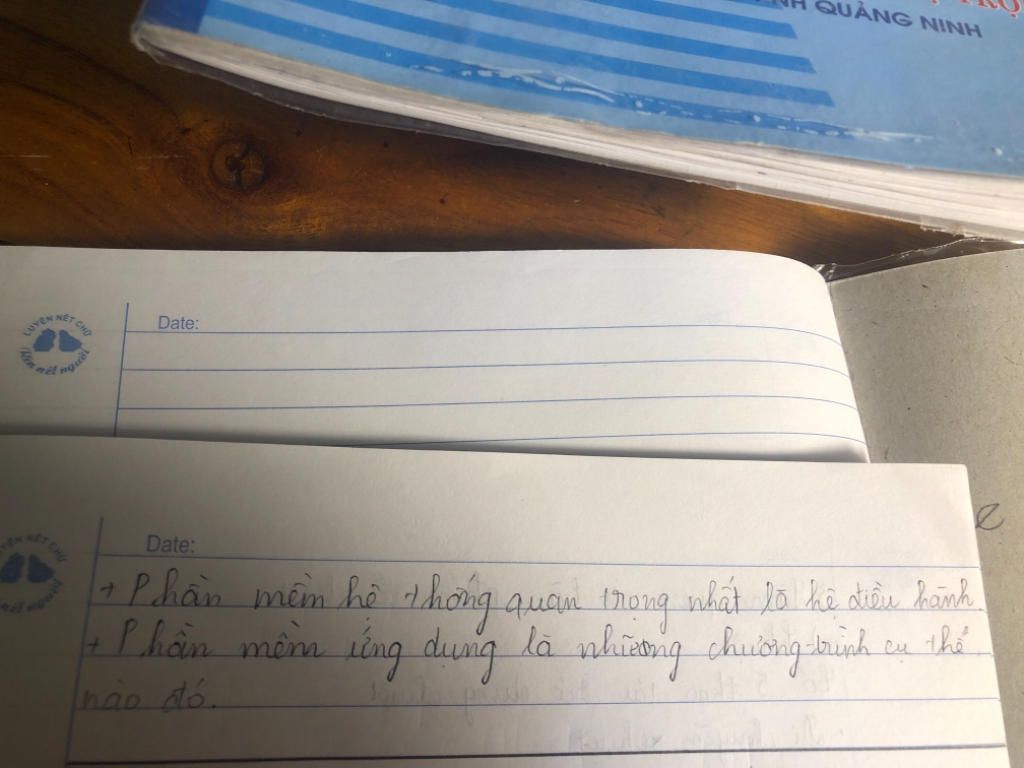 NH QUẢNG NINH
LUYỆN NÉT CHỮ
Rèn nết người
Date:
Date:
+ Phần mềm hệ thống quan trọng nhất là hệ điều hành
+ Phần mềm ứng dụng là những chương trình cụ thể
nào đó.